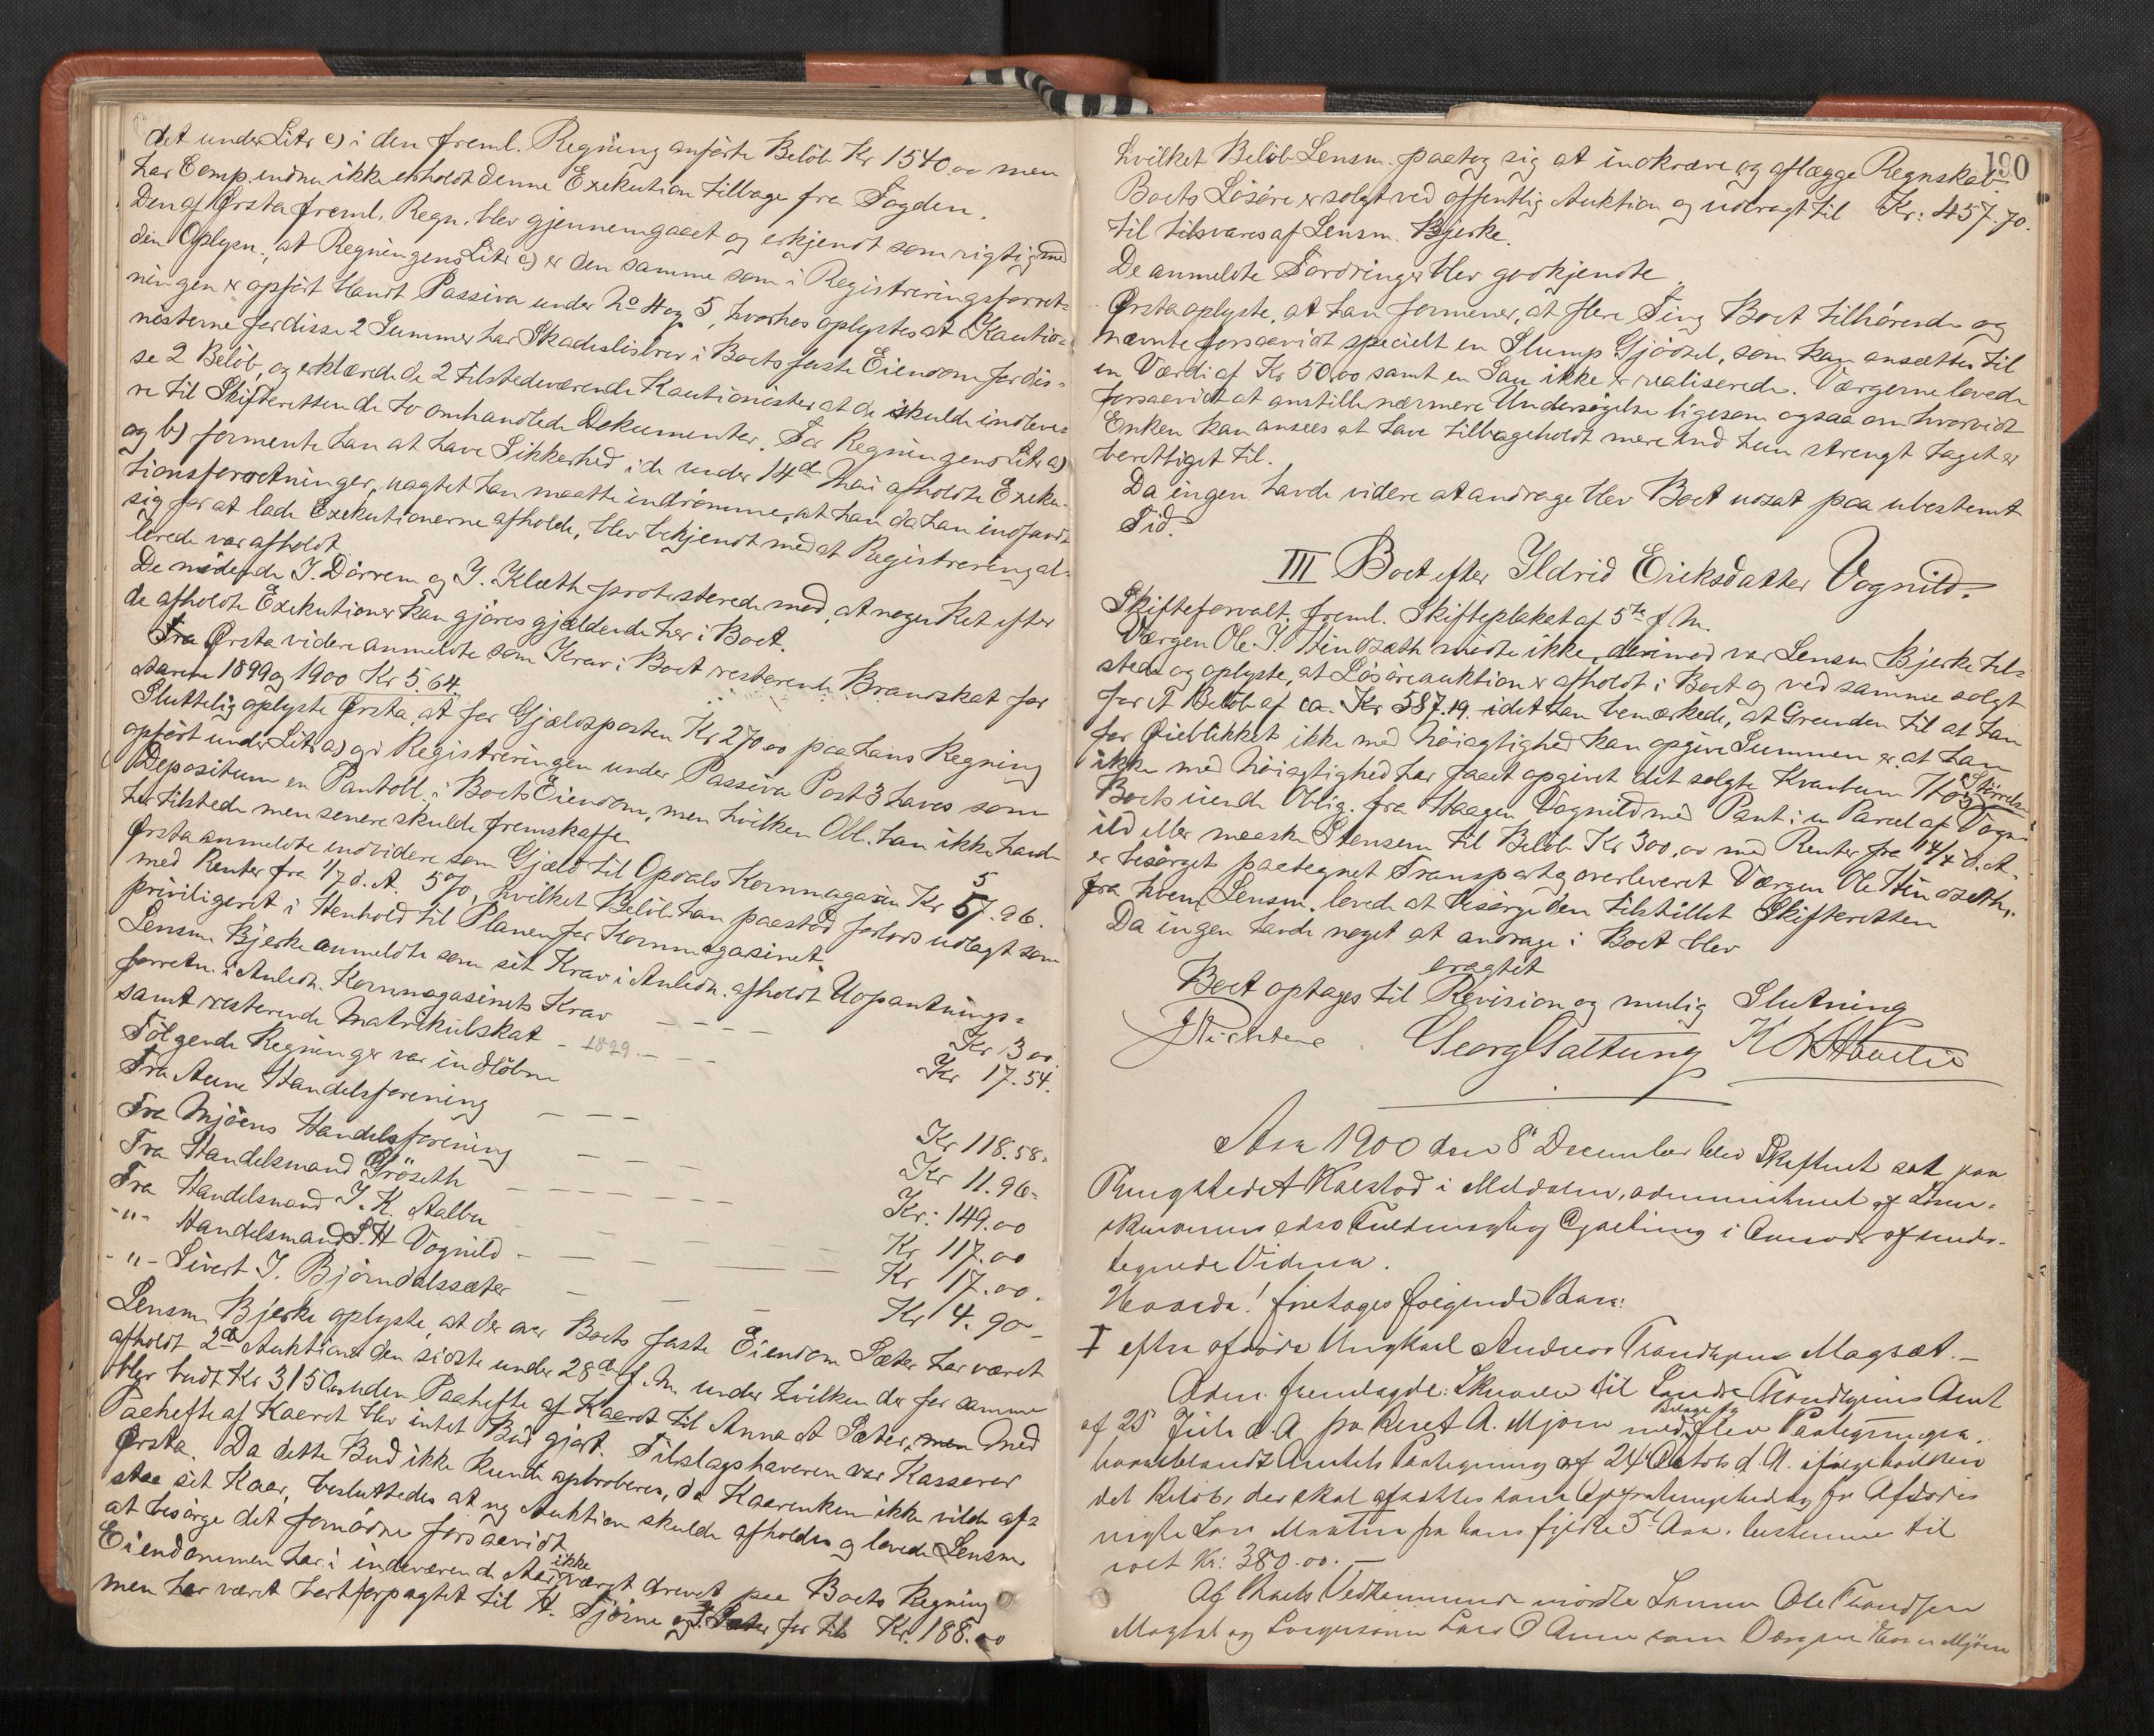 det under Litr c) i den freml. Regning anførte Beløb Kr 1540.00 men
har Comp. endnu ikke erholdt denne Exekution tilbage fra Fogden.
Den af Ørsta freml. Regn. blev gjennemgaaet og erkjendt som rigtig med
den Oplysn., at Regningens Litr c) er den samme som i Registreringsforret-
ningen er opført blandt Passiva under No 4 og 5, hvorhos oplystes at Kautio-
nisterne for disse 2 Summer har Skadesløsbrev i Boets faste Eiendom for dis-
se 2 Beløb, og erklærede de 2 tilstedeværende Kautionister at de skulde indleve-
re til Skifteretten de to omhandlede Dokumenter. For Regningens Litr a)
og b) formente han at have Sikkerhed i de under 14de Mai afholdte Exeku-
tionsforretninger, uagtet han maatte indrømme, at han da han indfandt
sig for at lade Exekutionerne afholde, blev bekjendt med at Registrering al-
lerede var afholdt.
De mødende J. Dørrem og J. Klæth protesterede mod, at nogen Ret efter
de afholdte Exekutioner kan gjøres gjældende her i Boet.
Fra Ørsta videre anmeldte som Krav i Boet resterende Brandskat for
Aarene 1899 og 1900 Kr 5.64.
Sluttelig oplyste Ørsta, at for Gjældsposten Kr 270.00 paa hans Regning
opført under Litr a) og i Registreringen under Passiva Post 3 haves som
Depositum en Pantobl. i Boets Eiendom, men hvilken Obl. han ikke havde
her tilstede men senere skulde fremskaffe
Ørsta anmeldte endvidere som Gjæld til Opdals Kornmagasin Kr 57.96.
5
med Renter fra 1/7 d. A. 5%, hvilket Beløb han paastod forlods udlagt som
priviligeret i Henhold til Planen for Kornmagasinet.
Lensm. Bjerke anmeldte som sit Krav i Anledn. afholdt Udpantnings-
forretn. i Anledn. Kornmagasinets Krav - - - - Kr 3 00.
samt resterende Matrikulskat - 1899 - - - Kr 17.54.
Følgende Regninger var indløbne
Fra Aune Handelsforening - - - Kr 118.58.
Fra Mjøens Handelsforening - - - Kr 11.96.
Fra Handelsmand Grøseth - - - - - Kr: 149.00
Fra Handelsmand J. K. Aalbu - - - Kr 117.00
-"- Handelsmand S. H Vognild - - - Kr 17.00.
-"- Sivert J. Bjørndalssæter - - - Kr 4.90 -
Lensm. Bjerke oplyste, at der over Boets faste Eiendom Sæter har været
afholdt 2de Auktioner den sidste under 28de f. M. under hvilken der for samme
blev budt Kr 3150.00 uden Paahefte af Kaaret til Anna A Sæter, men Med
Paahefte af Kaaret blev intet Bud gjort. Tilslagshaveren var Kasserer
Ørsta. Da dette Bud ikke kunde approberes, da Kaarenken ikke vilde af-
staa sit Kaar, besluttedes at ny Auktion skulde afholdes og lovede Lensm.
at besørge det fornødne forsaavidt.
ikke
Eiendommen har i indeværende Aar været drevet paa Boets Regning
men har været bortforpagtet til H. Fjørne og J. Sæter for tils Kr. 188.00
190
hvilket Beløb Lensm. paatog sig at inkræve og aflægge Regnskab.
Boets Løsøre er solgt ved offentlig Auktion og udbragt til Kr: 457.70.
til tilsvares af Lensm. Bjerke.
De anmeldte Fordringer blev godkjendte
Ørsta oplyste, at han formener, at flere Ting Boet tilhørende og
nævnte forsaavidt specielt en Slump Gjødsel, som kan ansættes til
en Værdi af Kr 50.00 samt en Sau ikke er realiserede. Værgerne lovede
forsaavidt at anstille nærmere Undersøgelse ligesom ogsaa om hvorvidt
Enken kan ansees at have tilbageholdt mere end hun strengt taget er
berettiget til.
Da ingen havde videre at andrage blev Boet udsat paa ubestemt
Tid.
III Boet efter Ildrid Eriksdatter Vognild.
Skifteforvalt. freml. Skifteplakat af 5te f. M.
Værgen Ole J. Hindseth mødte ikke, derimod var Lensm Bjerke til-
stede og oplyste, at Løsøreauktion er afholdt i Boet og ved samme solgt
for et Beløb af ca. Kr 587.19. idet han bemærkede, at Grunden til at han
for Øieblikket ikke med Nøiagtighed kan opgive Summen er, at han
ikke med Nøiagtighed har faaet opgivet det solgte Kvantum Høs Størrelse
Boets eiende Oblig. fra Haagen Vognild med Pant i en Parcel af Vogn-
ild eller maaske Stensem til Beløb Kr 300.00 med Renter fra 14/4 d. A.
er besørget paategnet Transport og overleveret Værgen Ole Hindseth,
fra hvem Lensm. lovede at besørge den tilstillet Skifteretten
Da ingen havde noget at andrage i Boet blev
eragtet
Boet optages til Revision og mulig Slutning
J Richter Georg Galtung K K Hævelie
Aar 1900 den 8de December blev Skifteret sat paa
Thingstedet Kalstad i Meldalen, administreret af Soren-
skriverens edsv Fuldmægtig Galtung i Overvær af under-
tegnede Vidner.
Hvorda! foretoges følgende Boer:
I efter afdøde Ungkarl Andreas Trondsens Magsæt. -
Adm. fremlagde: Skrivelse til Søndre Trondhjems Amt
Bilage og
af 25 Juli d. A fra Beret A. Mjøen med flere Paategninger,
hvoriblandt Amtets Paategning af 24 Octob d. A. ifølge hvilken
det Beløb, der skal afsættes som Opfostringsbidrag for Afdødes
uægte Søn Martin fra hans fyldte 5te Aar. bestemmes til
ialt Kr: 380.00. -
Af Boets Vedkommende mødte Lensm Ole Trondsen
Magsæt og Svigersønn Lars O Aune som Værge for Mjøen